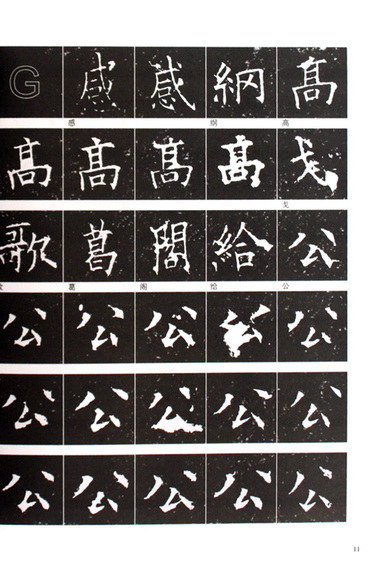 G 感 感 綱 高
感 纲 高
高 高 高 高 戈
戈
歌 葛 閣 給 公
葛 阁 给 公
公 公 公 公 公
公 公 公 公 公
公 公 公 公 公
11